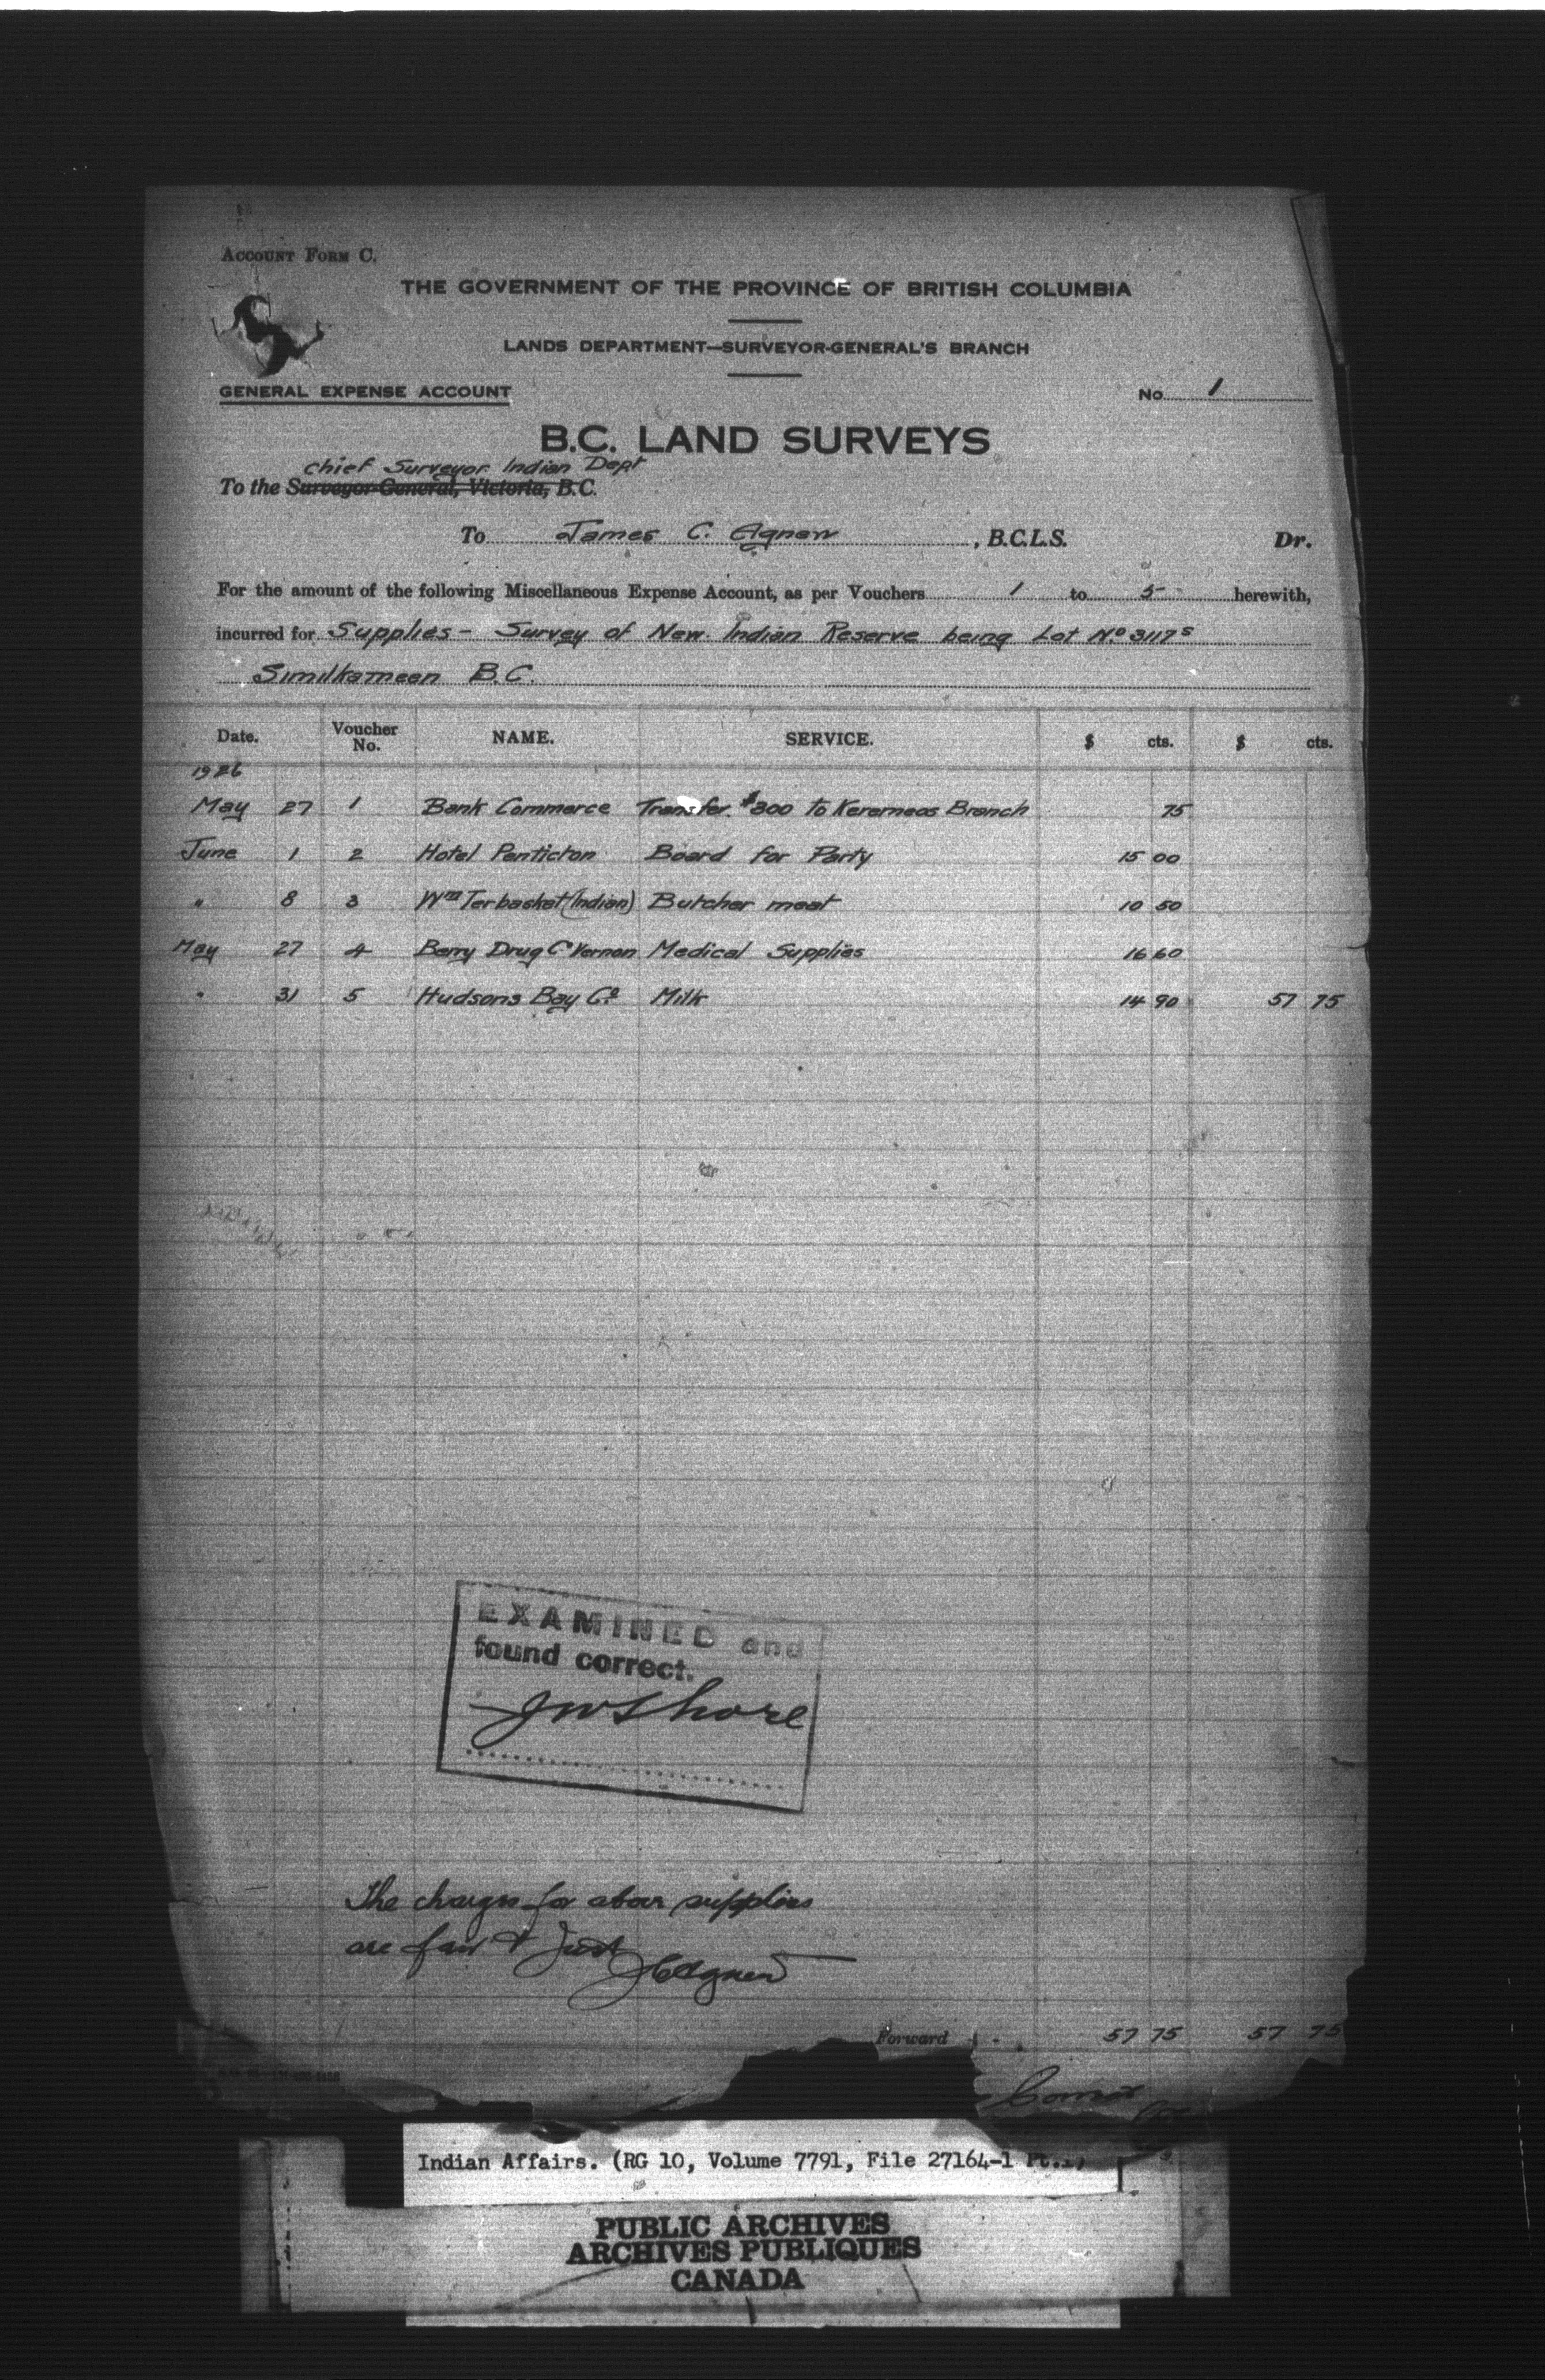 ACCOUNT FORM C.
THE GOVERNMENT OF THE PROVINCE OF BRITISH COLUMBIA
LANDS DEPARTMENT—SURVEYOR-GENERAL'S BRANCH
GENERAL EXPENSE ACCOUNT
No. 1
B.C. LAND SURVEYS
Chief Surveyor Indian Dept
To the Surveyor-General, Victoria, B.C.
To James C. Agnew, B.C.L.S. Dr.
For the amount of the following Miscellaneous Expense Account, as per Vouchers 1 to 5 herewith,
incurred for Supplies - Survey of New Indian Reserve being Lot No 3117s
Similkameen B.C.
Date. Voucher No. NAME. SERVICE. $ cts. $ cts.
1926
May 27 1 Bank Commerce Transfer $300 to Keremeos Branch 75
June 1 2 Hotel Penticton Board for Party 15 00
" 8 3 Wm Terbasket (Indian) Butcher meat 10 50
May 27 4 Berry Drug Co Vernon Medical Supplies 16 60
" 31 5 Hudsons Bay Co Milk 14 90 57 75
EXAMINED and
found correct.
JWShore
The charges for above supplies
are fair & Just
JCAgnew
Forward 57 75 57 75
Indian Affairs. (RG 10, Volume 7791, File 27164-1 Pt.1)
PUBLIC ARCHIVES
ARCHIVES PUBLIQUES
CANADA